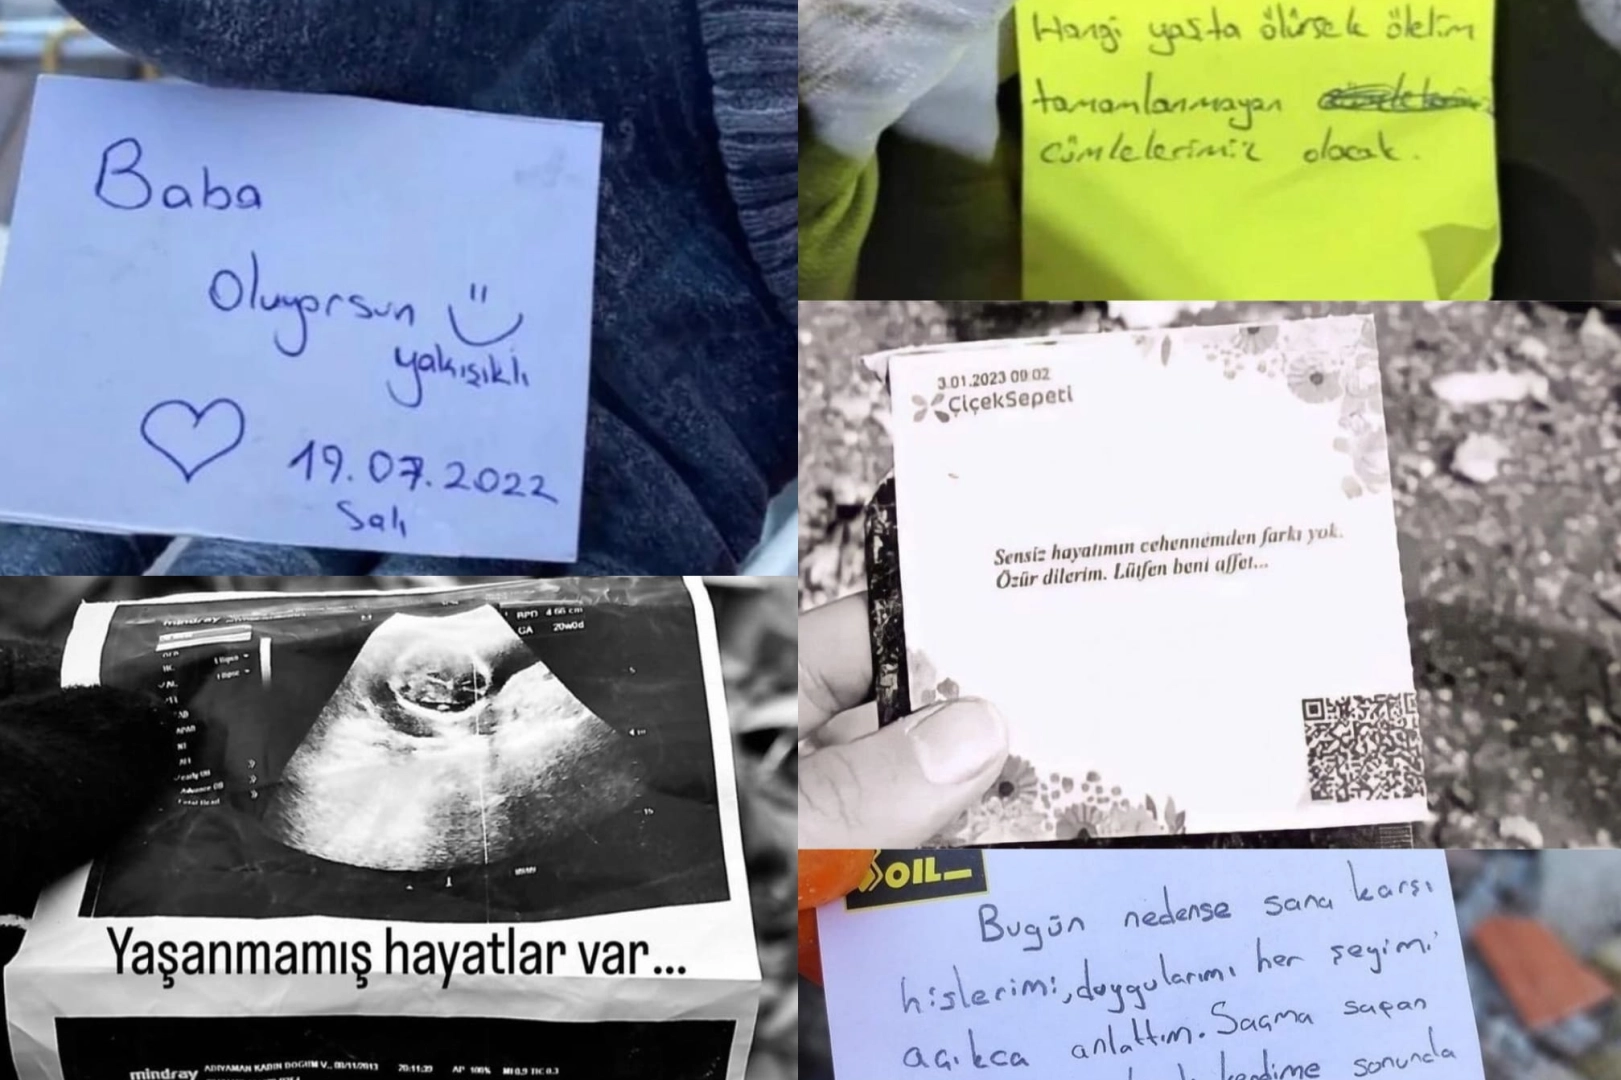 Baba
Oluyorsun
yakışıklı
19.07.2022
Salı
Hangi yaşta ölürsek ölelim
tamamlanmayan
cümlelerimiz olacak.
3.01.2023 09:02
ÇiçekSepeti
Sensiz hayatımın cehennemden farkı yok.
Özür dilerim. Lütfen beni affet...
mindray
BPD 4.66 cm
GA 20w0d
Yaşanmamış hayatlar var...
mindray
ADIYAMAN KADIN DOGUM V...
20:11:39
AP 100%
OIL
Bugün nedense sana karşı
hislerimi, duygularımı her şeyimi
açıkca anlattım. Saçma sapan
kendime sonunda